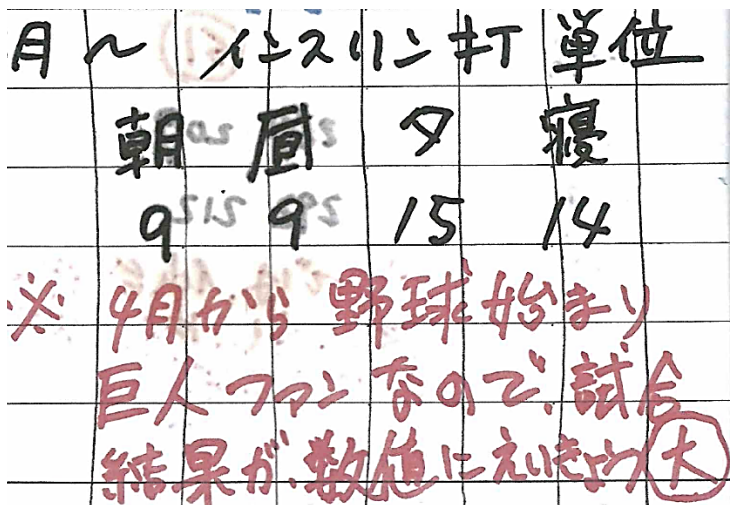 月～ インスリン打単位
朝 昼 夕 寝
9 9 15 14
※ 4月から野球始まり
巨人ファンなので、試合
結果が、数値にえいきょう大